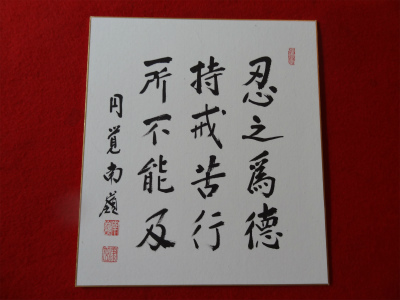 忍之爲德
持戒苦行
所不能及
円覚南嶺